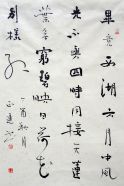 畢竟西湖六月中風
光不與四時同接天蓮
葉無窮碧映日荷花
別樣紅